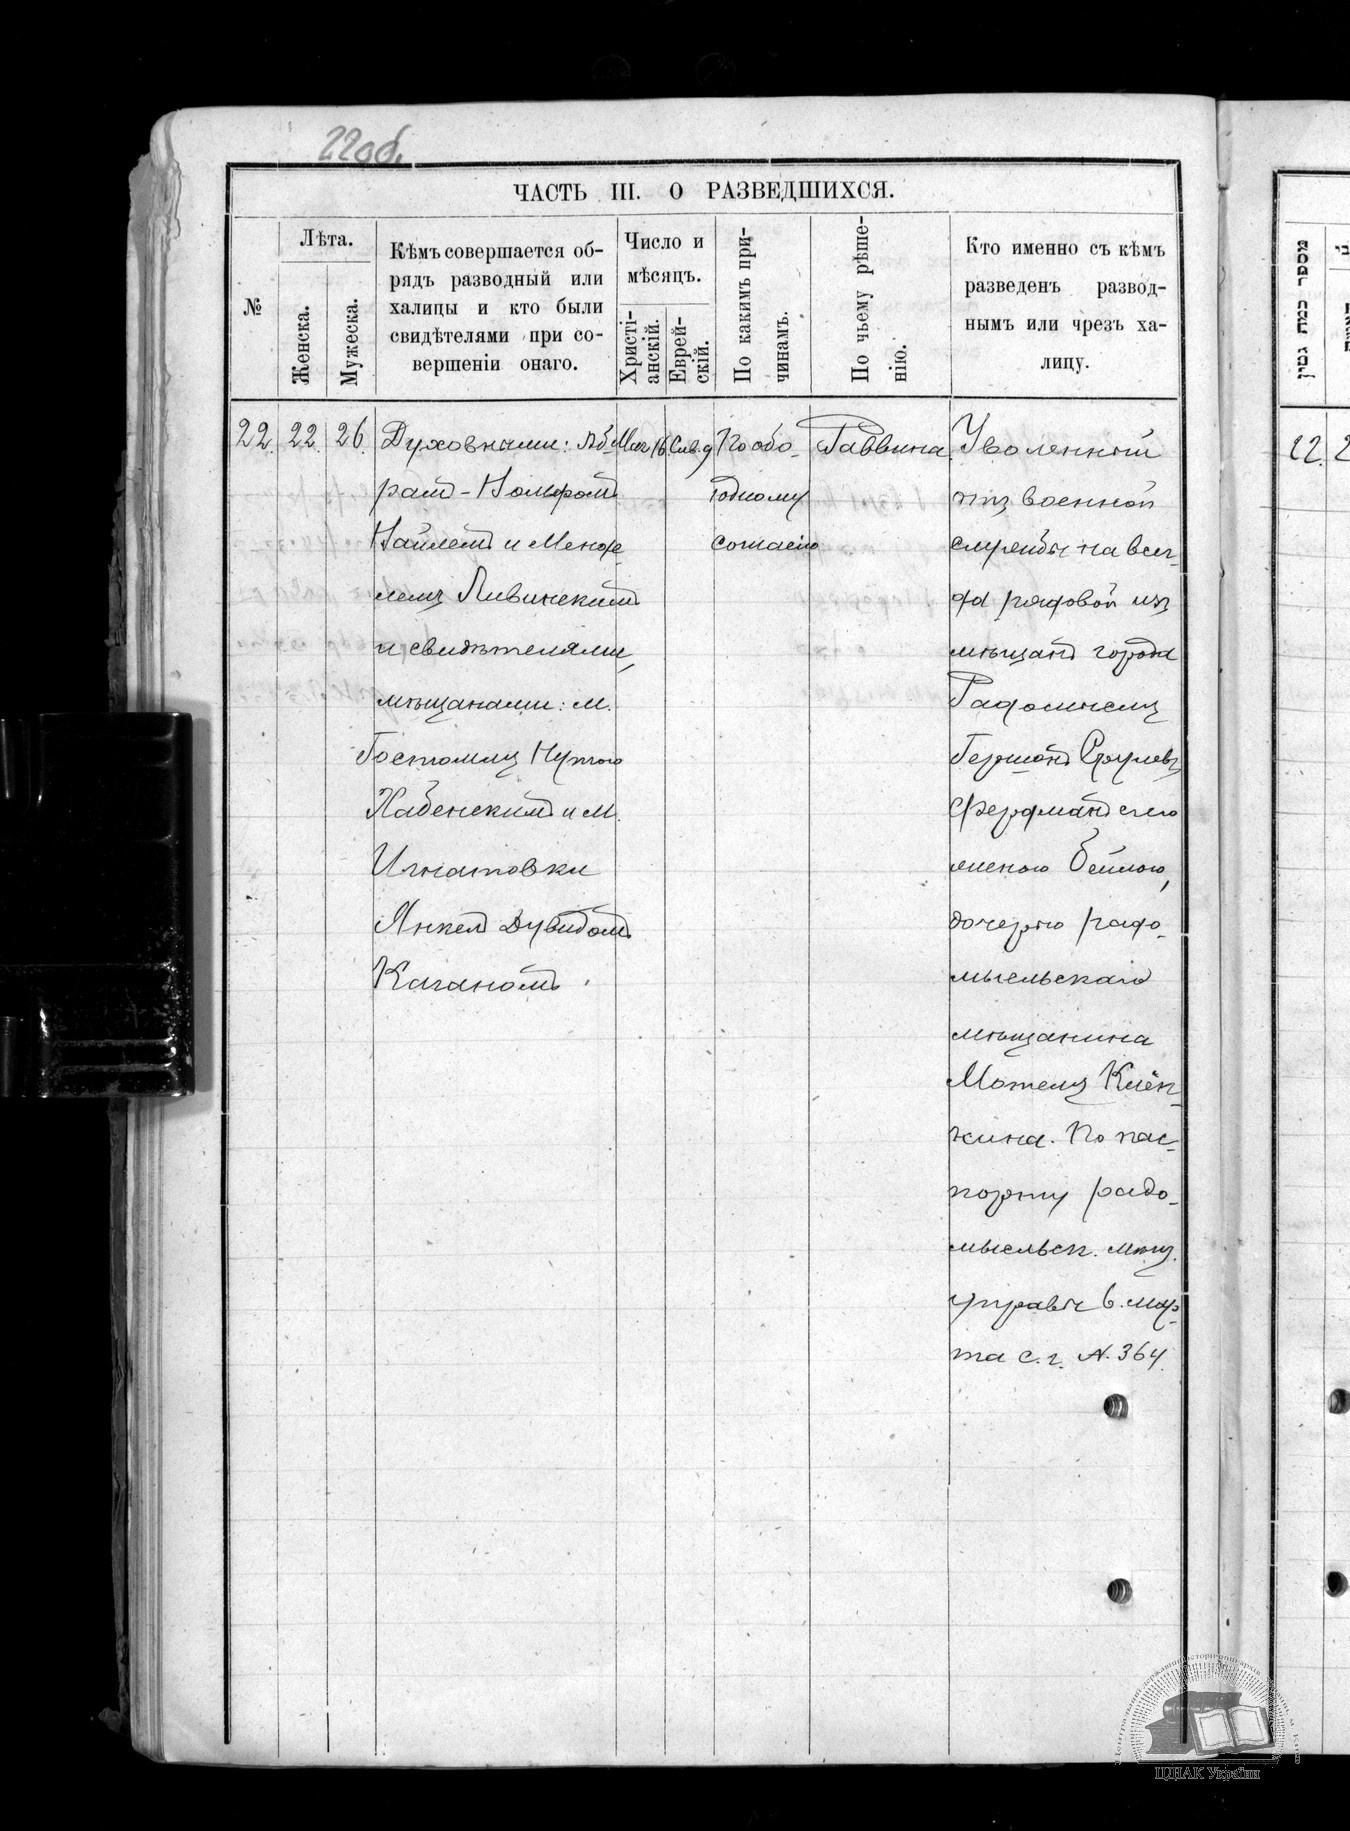 22 об.
ЧАСТЬ III. О РАЗВЕДШИХСЯ.
№
Лѣта.
Женска.
Мужеска.
Кѣмъ совершается об-
рядъ разводный или
халицы и кто были
свидѣтелями при со-
вершеніи онаго.
Число и
мѣсяцъ.
Христі-
анскій.
Еврей-
скій.
По какимъ при-
чинамъ.
По чьему рѣше-
нію.
Кто именно съ кѣмъ
разведенъ развод-
нымъ или чрезъ ха-
лицу.
22. 22. 26.
Духовными: Аб-
рам-
и Менде-
лемъ Ливинскимъ
и свидѣтелями,
мѣщанами: м.
Гостомля
Хабенскимъ и м.
Игнатовки
Янкел Дувидом
Каганомъ.
16
9
По обо-
юдному
согласію
Раввина
Уволенный
изъ военной
службы на всег-
да рядовой изъ
мѣщанъ города
Радомысля
Гершонъ Сруловъ
Фердманъ съ его
женою Бейлою,
дочерью радо-
мысльскаго
мѣщанина
Мотеля
кина. По пас-
порту радо-
мысльск. мѣщ.
управы 6. мар-
та с. г. N. 364.
מספר כמה גטין
22.
ЦДІАК України